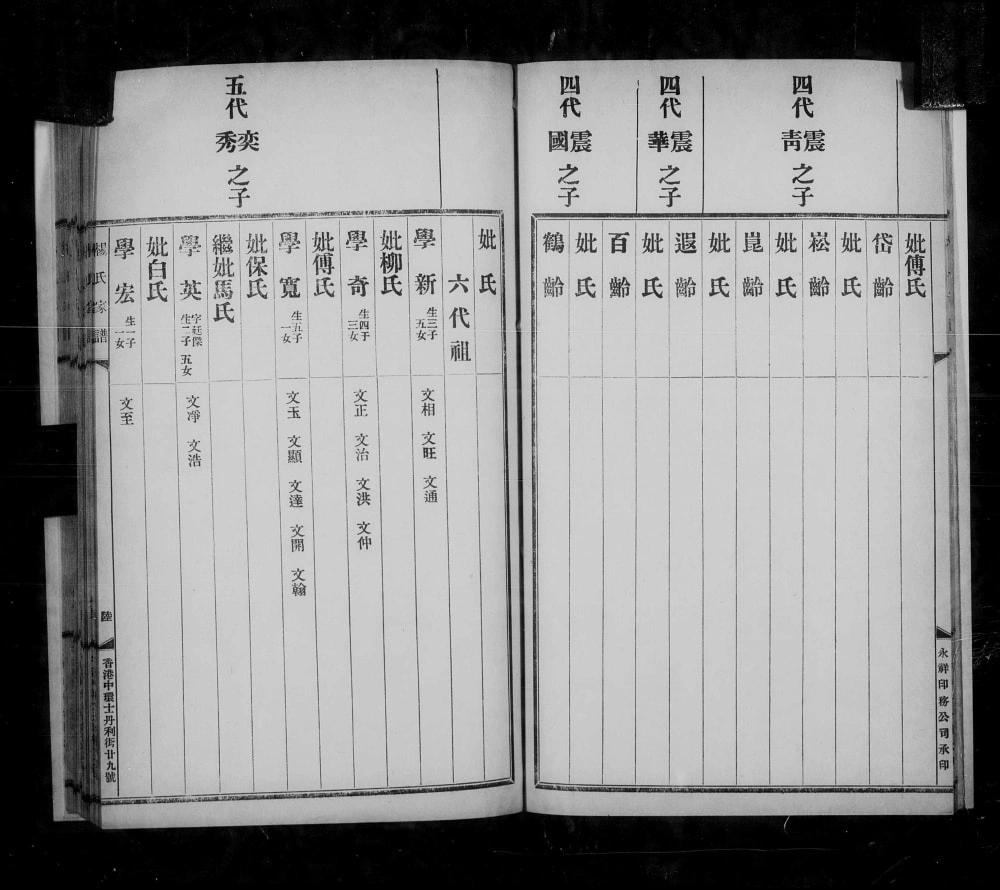 四代 震靑 之子
四代 震華 之子
四代 震國 之子
妣傅氏
岱齡
妣氏
崧齡
妣氏
崑齡
妣氏
遐齡
妣氏
百齡
妣氏
鶴齡
永祥印務公司承印
五代 奕秀 之子
妣氏
六代祖
學新 生三子五女 文相 文旺 文通
妣柳氏
學奇 生四子三女 文正 文治 文洪 文仲
妣傅氏
學寬 生五子一女 文玉 文顯 文達 文開 文翰
妣保氏
繼妣馬氏
學英 字廷傑生二子五女 文凈 文浩
妣白氏
學宏 生一子一女 文至
楊氏家譜
陸
香港中環士丹利街廿九號